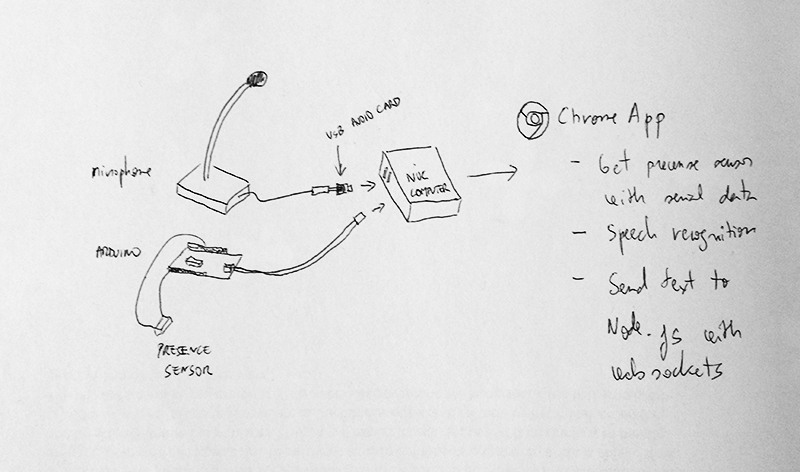 microphone
USB AUDIO CARD
NUC
COMPUTER
ARDUINO
PRESENCE
SENSOR
Chrome App
- Get precense sensor
with serial data
- Speech recognition
- Send text to
Node.js with
websockets